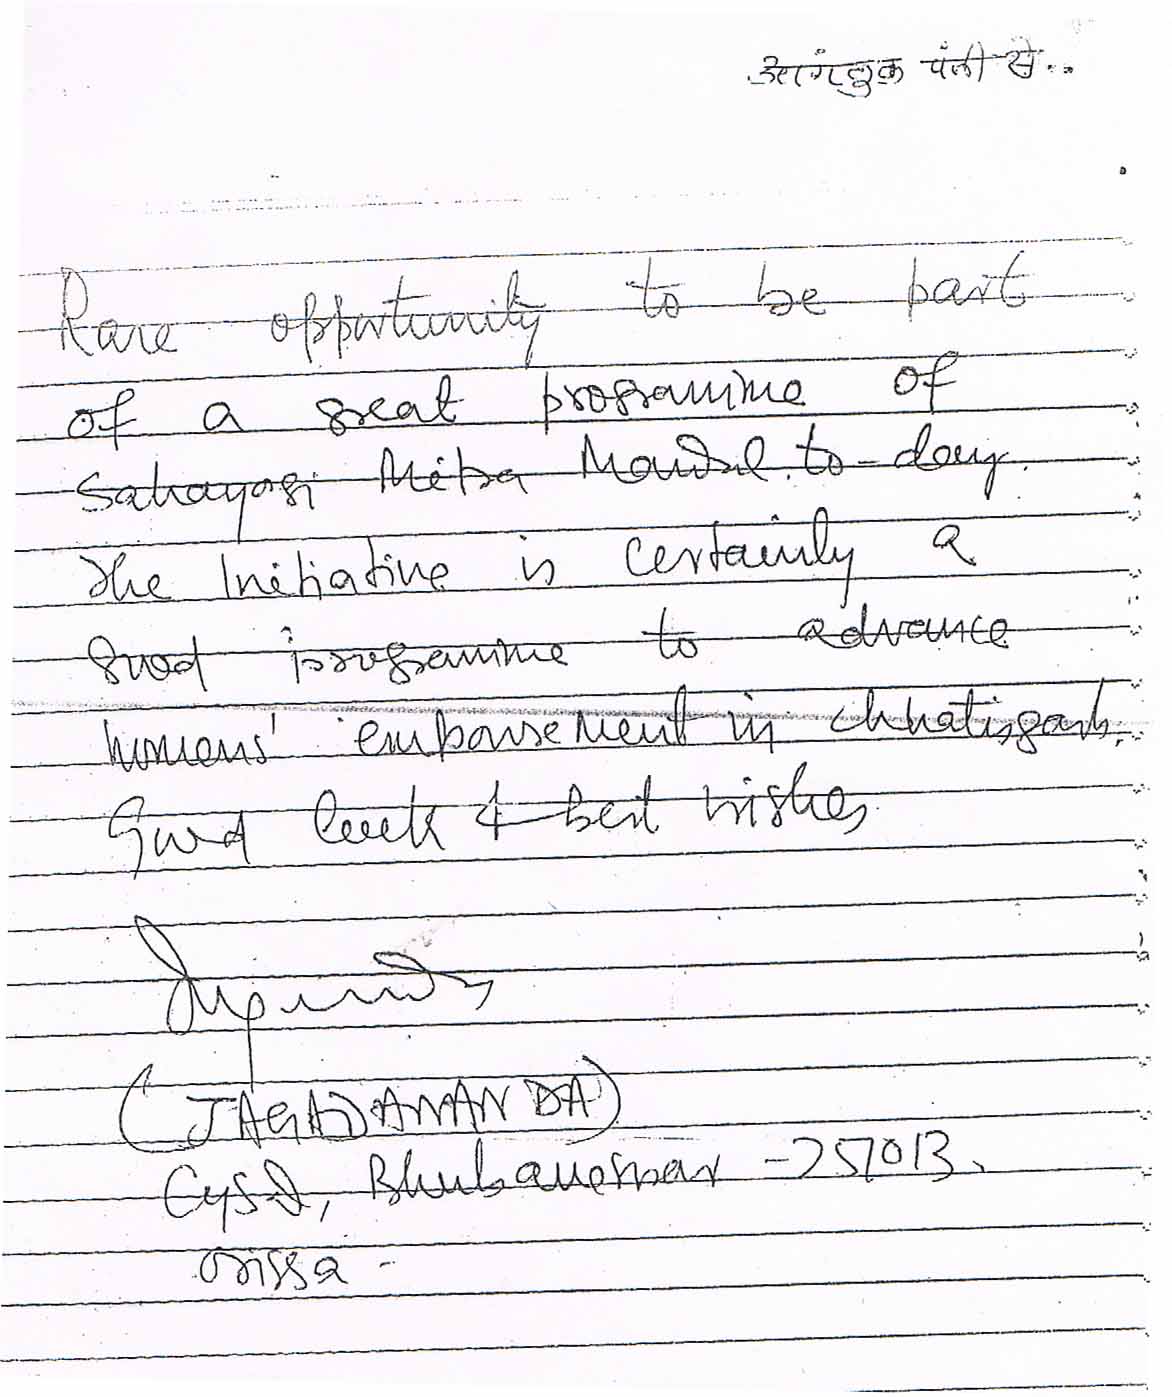 आगंतुक पंजी से...
Rare opportunity to be part
of a great programme of
Sahayogi Mitra Mandal to-day.
The Initiative is certainly a
good programme to advance
womens' emporsement in chhatisgarh.
Good luck & best wishes
(JAGADANANDA)
CYSD, Bhubaneswar - 751013.
Orissa -